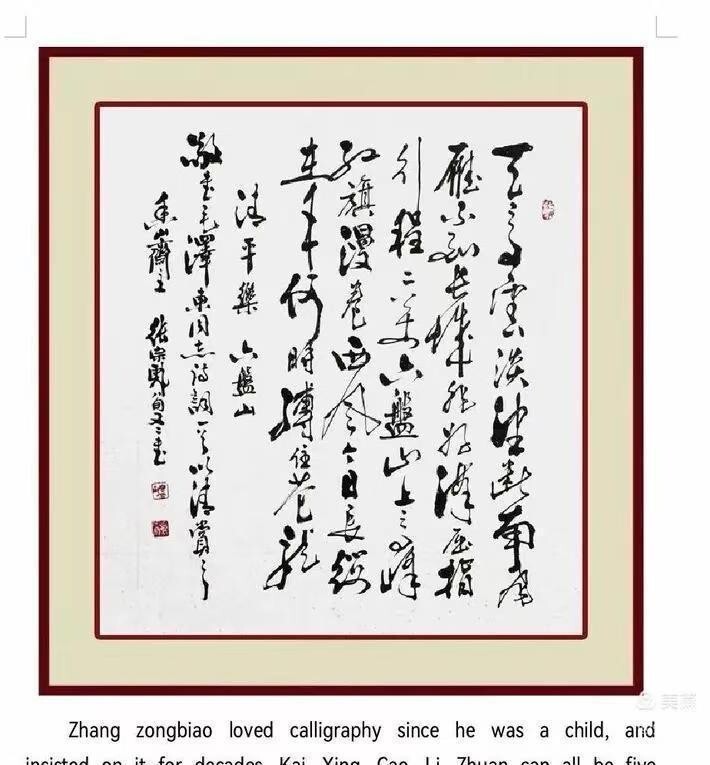 天高雲淡望断南飛
雁不到長城非好漢屈指
行程二万六盤山上高峰
红旗漫卷西风今日長缨
在手何時縛住苍龍
清平樂 六盤山
敬書毛澤東同志詩詞一首以清賞之
山齋主 张宗彪
美篇
Zhang zongbiao loved calligraphy since he was a child, and
insisted on it for decades. Kai, Xing, Cao, Li, Zhuan can all be five